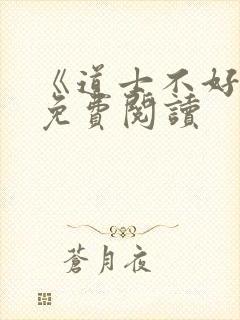 《道士不好
免費閱讀
蒼月夜